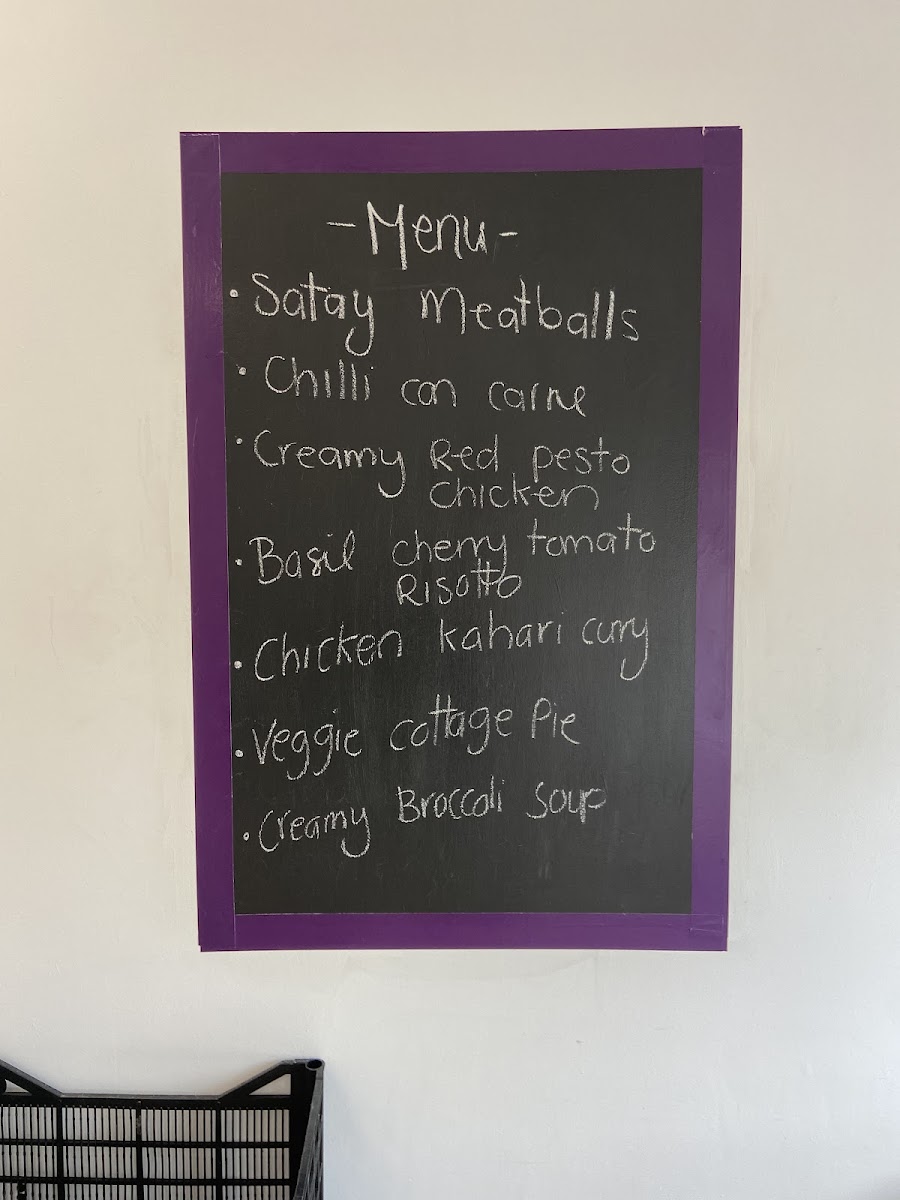 -Menu-
• Satay Meatballs
• Chilli con carne
• Creamy Red pesto
chicken
• Basil cherry tomato
Risotto
• Chicken kahari curry
• Veggie cottage Pie
• Creamy Broccoli Soup